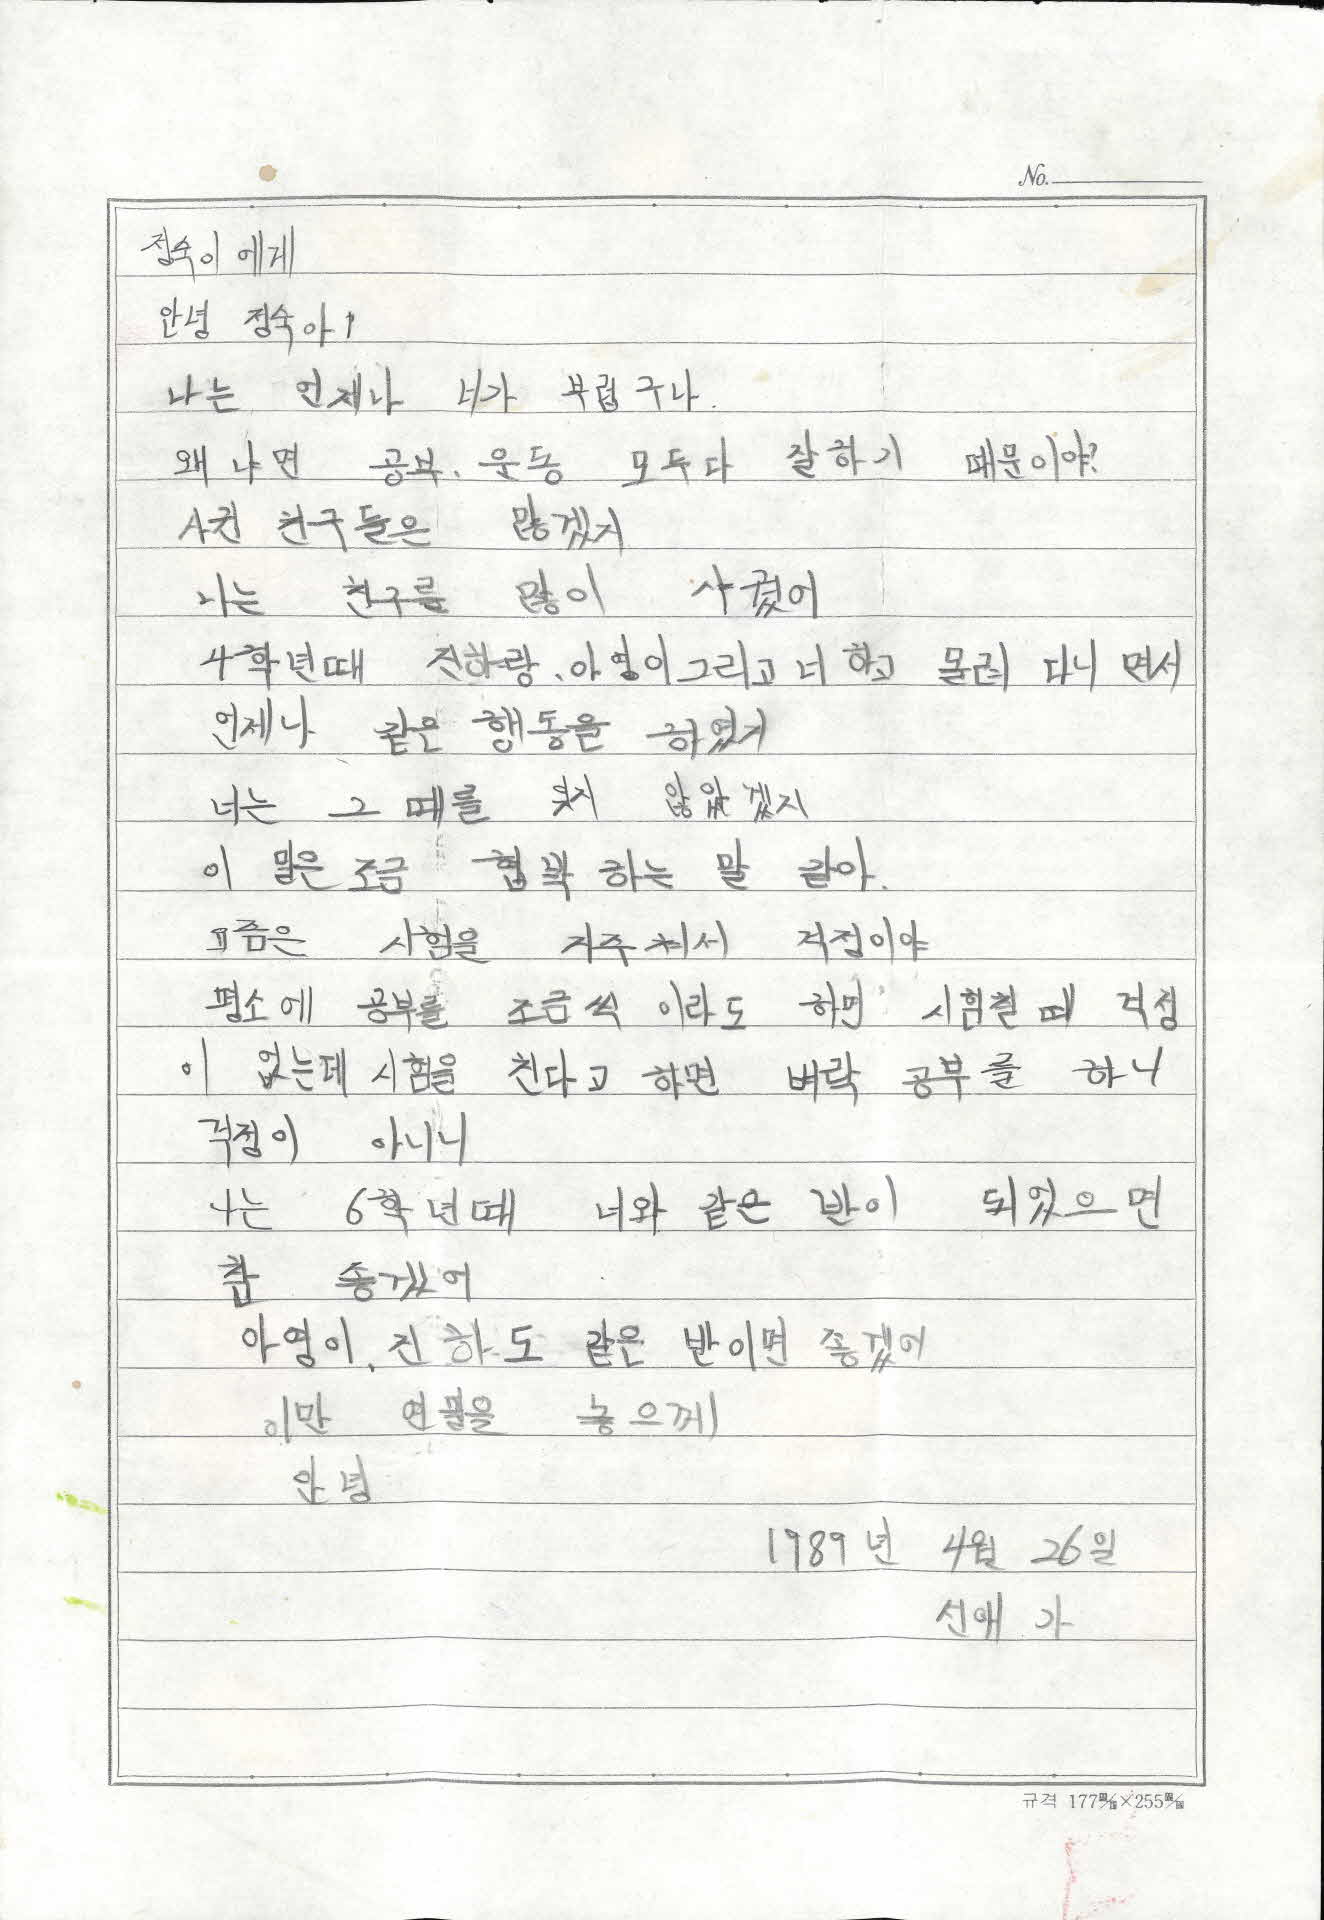 No.
정숙이 에게
안녕 정숙아!
나는 언제나 너가 부럽구나.
왜냐면 공부. 운동 모두다 잘하기 때문이야?
사귄 친구들은 많겠지
나는 친구를 많이 사궜어
4학년때 진하랑. 아영이 그리고 너하고 몰려 다니면서
언제나 같은 행동을 하였지
너는 그 때를 잊지 않았겠지
이 말은 조금 협박 하는 말 같아.
요즘은 시험을 자주 쳐서 걱정이야
평소에 공부를 조금씩 이라도 하면 시험칠 때 걱정
이 없는데 시험을 친다고 하면 벼락 공부를 하니
걱정이 아니니
나는 6학년때 너와 같은 반이 되었으면
참 좋겠어
아영이, 진하도 같은 반이면 좋겠어
이만 연필을 놓으께
안녕
1989년 4월 26일
신애가
규격 177㎜×255㎜